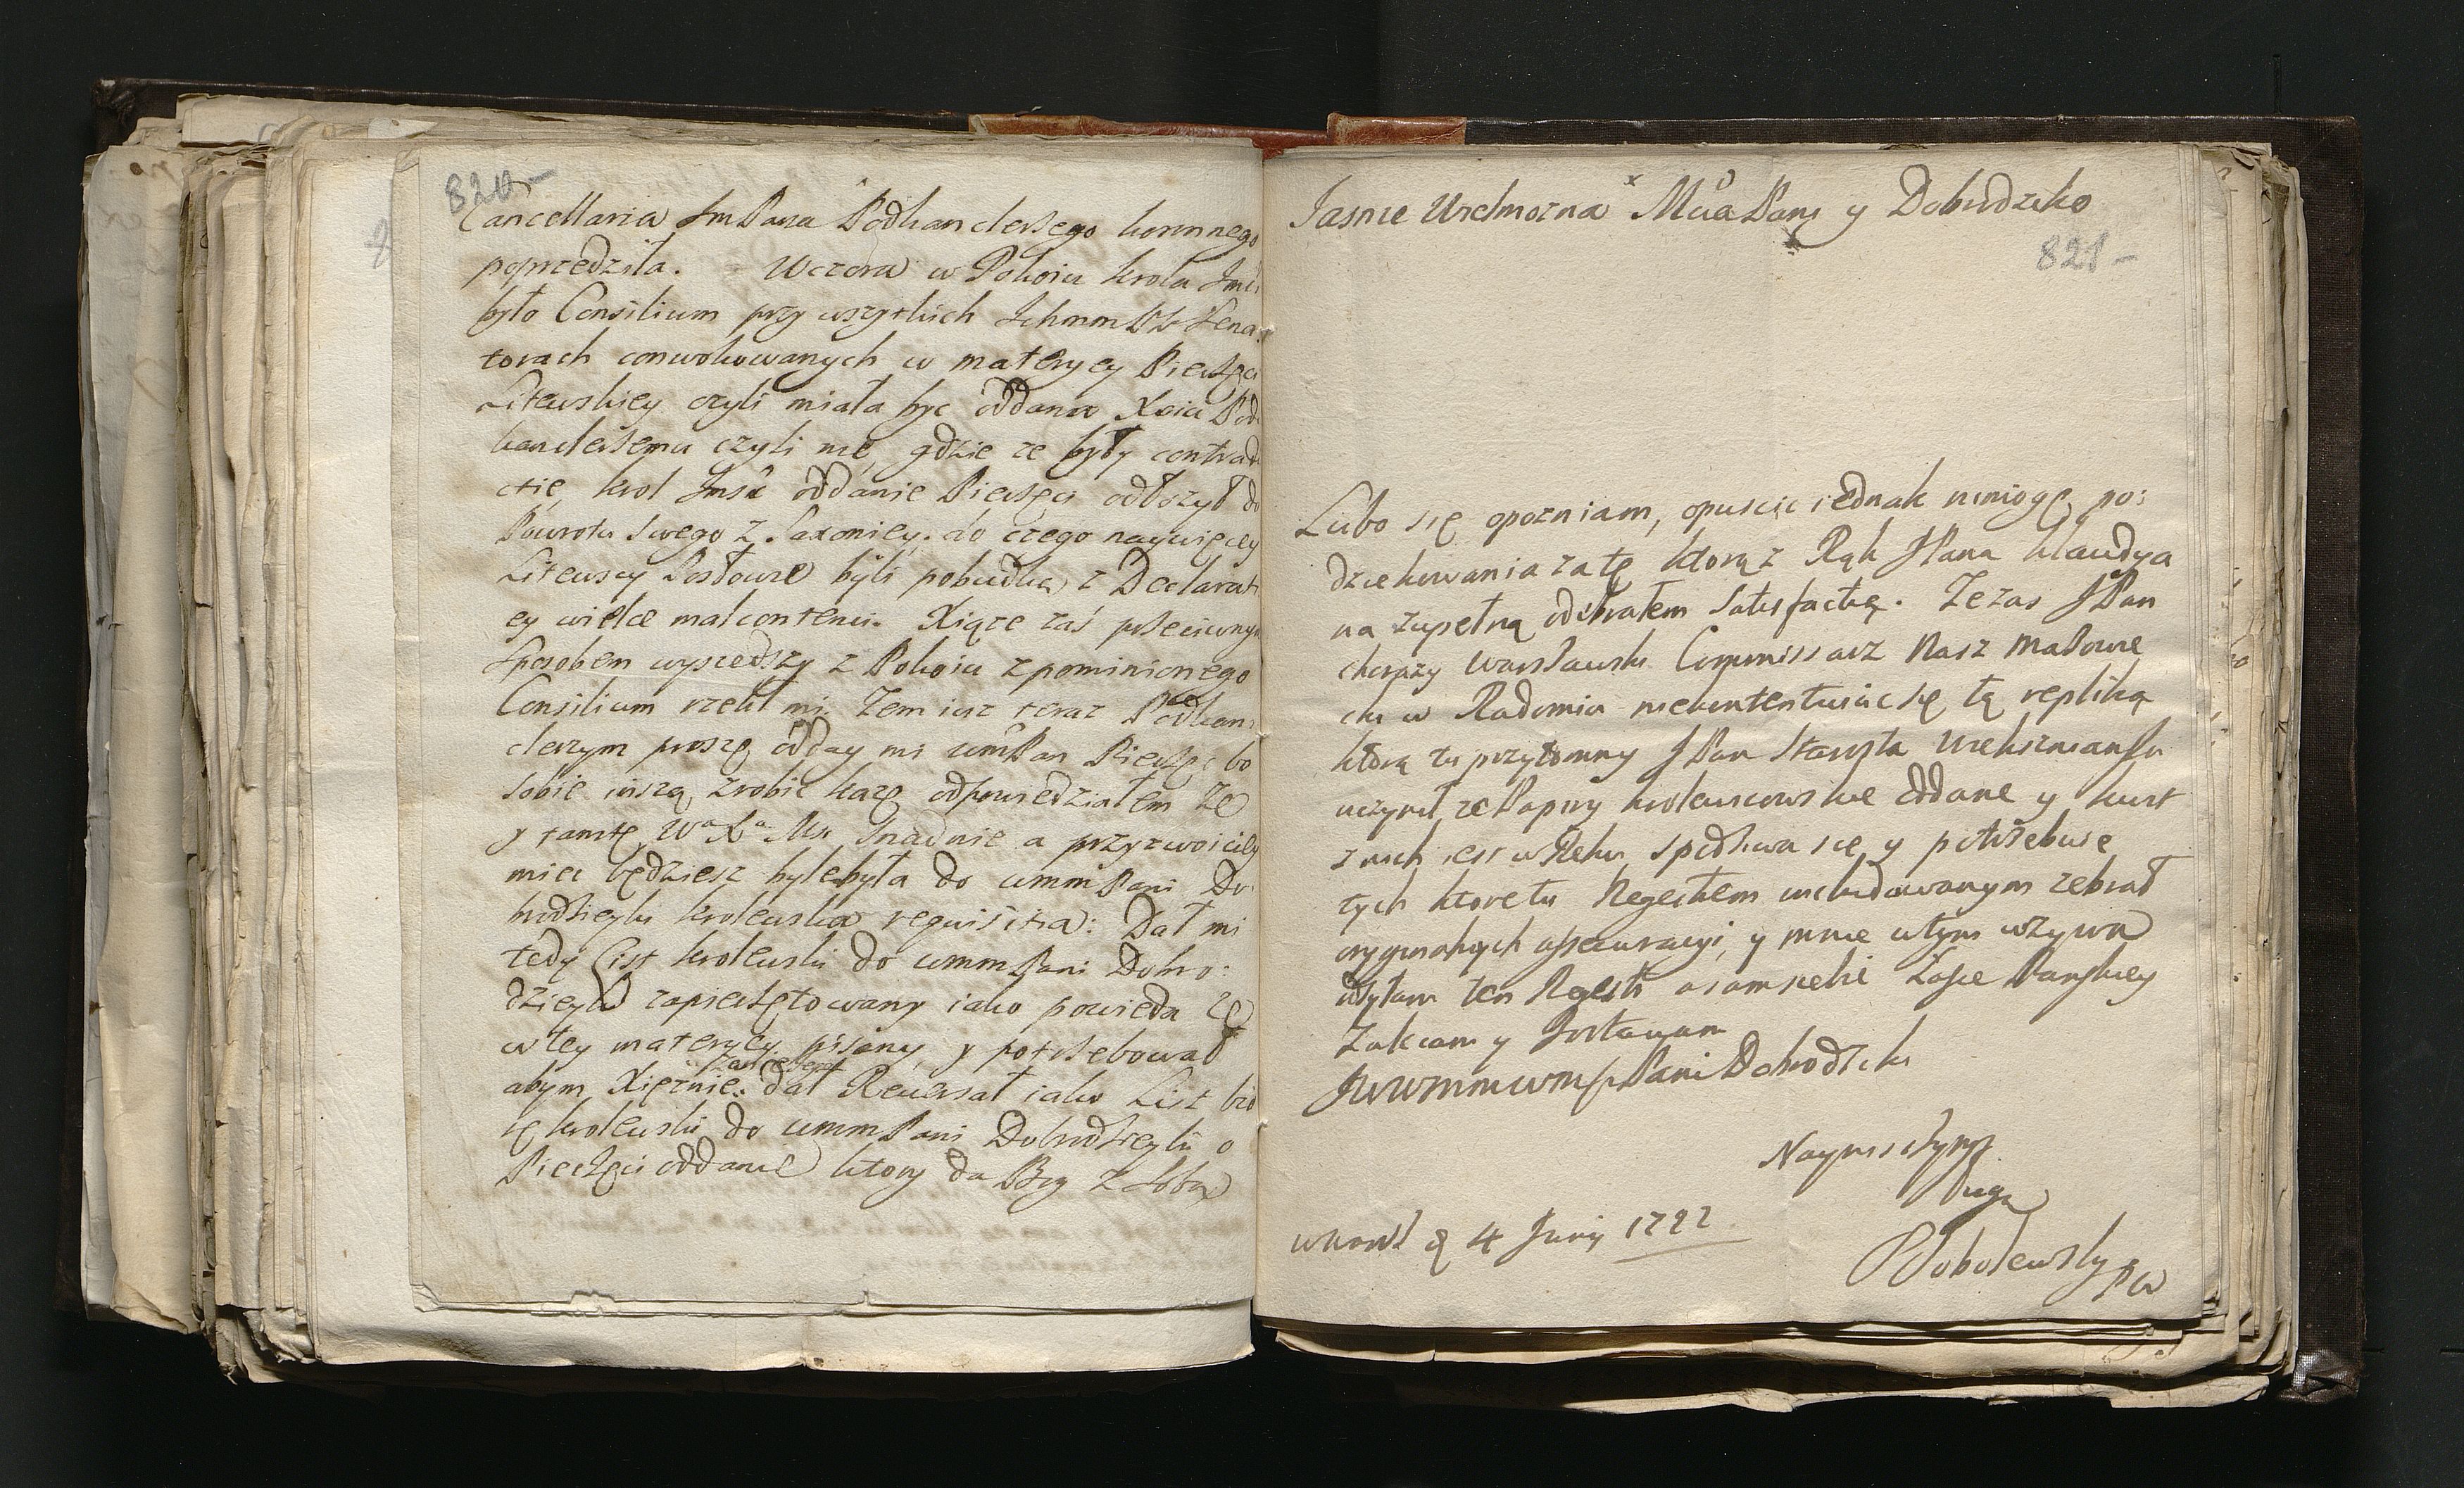 820-
Cancellaria Jm Pana Podkanclerzego koronnego
poprzedziła. Wczora w Pokoiu krola Jmci
było Consilium przy wszytkich Ichmm PP Sena
torach conwokowanych w materyey Pieczęci
Litewskiey czyli miała byc oddana Xciu Pod
kanclerzemu czyli nie, gdzie ze były contradi
ctie, krol Jmsc oddanie Pieczęci odłozył do
Powrotu swego z Saxoniey. do czego naywięcey
Litewscy Posłowie byli pobudką z Declarati
ey wielce malcontenci. Xiąze zaś przeciwnym
sposobem wyszedszy z Pokoiu zpominionego
Consilium rzekł mi, Zem iusz teraz Podkan:
clerzym proszę odday mi wmPan Pieczęc bo
sobie inszą zrobic kazę odpowiedziałem Ze
y tamtę Wa Xa Mc snadnie a przyzwoiciey
miec będziesz byle była do wmm Pani Do:
brodzieyki krolewska requisitia: Dał mi
tedy List krolewski do wmm Pani Dobro:
dzieyki zapieczętowany iako powieda że
w tey materyey pisany, y potrzebował
abym Xięznie dał Rewersał iako List bio
rę krolewski do wmm Pani Dobrodzieyki o
Pieczęci oddanie ktory da Bog z Sobą
Jasnie Wielmozna Mcia Pani y Dobrodziko
821-
Lubo się opozniam, opuscic iednak niemogę po:
dziekowania za tę ktorą z Rąk JPana Klaudya
na zupełną odebrałem satisfactią. Ze zas JPan
chorązy warszawski Commissarz Nasz
cki w Radomiu niekontentuiąc się tą repliką
ktorą tu przytomny JPan Starosta
uczynił ze Papiry krolewicowskie oddane y kwit
z nich iest w Ręku, spodziwa się y potrzebuie
tych ktore tu Regestem zebrał
oryginalnych assecuracyi, y mnie w tym uzywa
odsyłam ten Regestr a sam siebie Łasce Pańskiey
Zalecam y Zostawam
JWWMMWMsc Pani Dobrodziki
Nayniszszym
sługą
w kowl d 4 Junij 1722